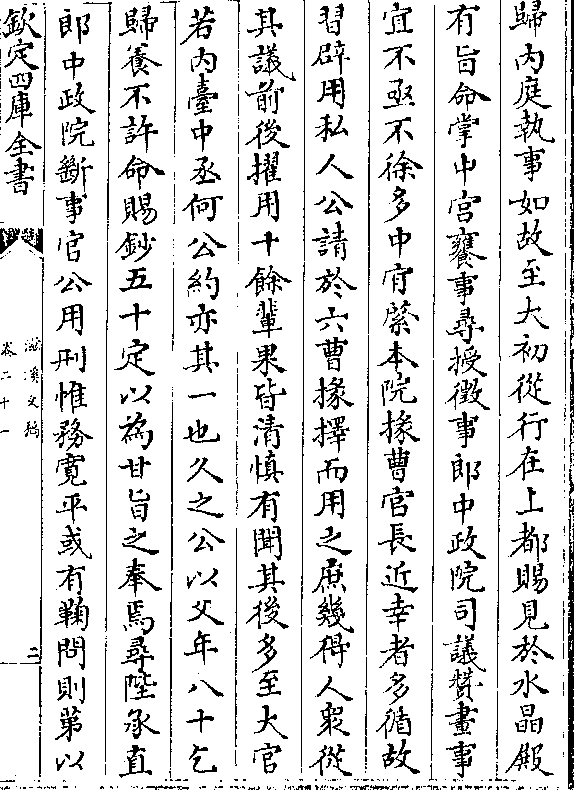 歸内庭執事如故至大初從行在上都賜見於水晶殿
有旨命掌中宫饔事尋授徵事郎中政院司議贊畫事
宜不亟不徐多中肯綮本院掾曹官長近幸者多循故
習辟用私人公請於六曹掾擇而用之庶幾得人衆從
其議前後擢用十餘輩果皆清慎有聞其後多至大官
若内臺中丞何公約亦其一也久之公以父年八十乞
歸養不許命賜鈔五十定以為甘旨之奉焉尋陞承直
郎中政院斷事官公用刑惟務寛平或有鞠問則第以
欽定四庫全書
滋溪文稿
卷二十一
二